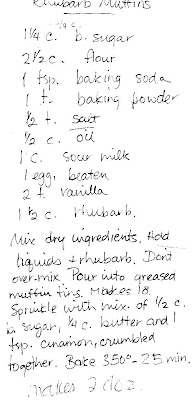 Rhubarb Muffins
1 1/4 c. b. sugar
2 1/2 c. flour
1 tsp. baking soda
1 t. baking powder
1/2 t. salt
1/2 c. oil
1 c. sour milk
1 egg, beaten
2 t. vanilla
1 1/2 c. rhubarb.
Mix dry ingredients. Add
liquids + rhubarb. Dont
over-mix. Pour into greased
muffin tins. Makes 18.
Sprinkle with mix. of 1/2 c.
b. sugar, 1/4 c. butter and 1
tsp. cinamon, crumbled
together. Bake 350° - 25 min.
makes 2 doz.